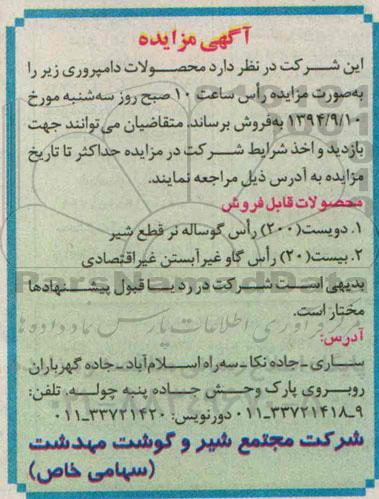 آگهی مزایده
این شرکت در نظر دارد محصولات دامپروری زیر را
به‌صورت مزایده رأس ساعت ۱۰ صبح روز سه‌شنبه مورخ
۱۳۹۴/۹/۱۰ به‌فروش برساند. متقاضیان می‌توانند جهت
بازدید و اخذ شرایط شرکت در مزایده حداکثر تا تاریخ
مزایده به آدرس ذیل مراجعه نمایند.
محصولات قابل فروش
۱. دویست(۲۰۰) رأس گوساله نر قطع شیر
۲. بیست(۲۰) رأس گاو غیرآبستن غیراقتصادی
بدیهی است شرکت در رد یا قبول پیشنهادها
مختار است.
آدرس:
ساری ـ جاده نکا ـ سه‌راه اسلام‌آباد ـ جاده گهرباران
روبروی پارک وحش جاده پنبه چوله. تلفن:
۹ـ۳۳۷۲۱۴۱۸ـ۰۱۱ دورنویس: ۳۳۷۲۱۴۲۰ـ۰۱۱
شرکت مجتمع شیر و گوشت مهدشت
(سهامی خاص)